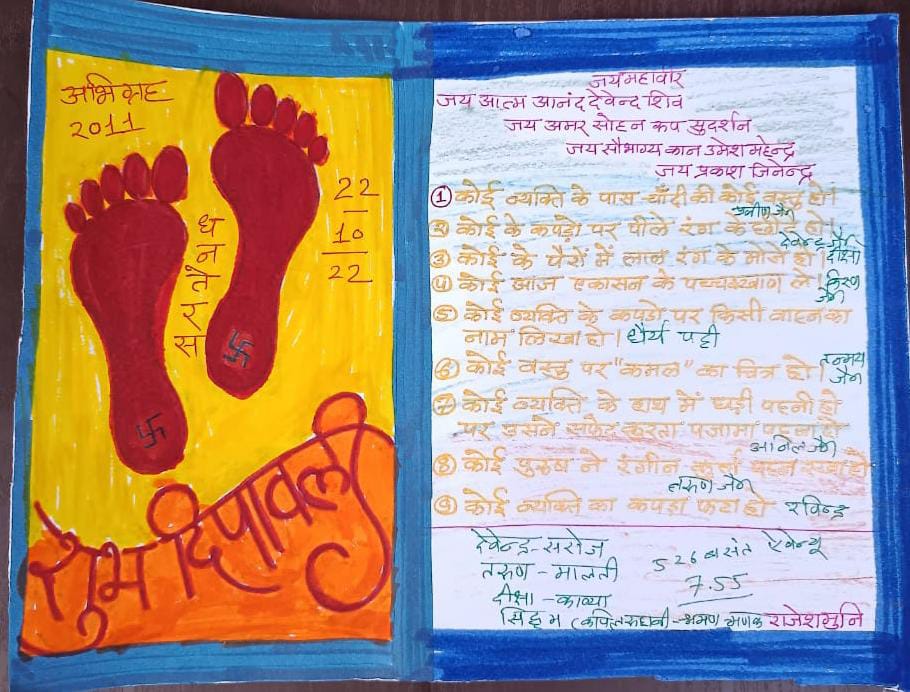 अभिग्रह
2011
धनतेरस
22
10
22
शुभ दिपावली
जय महावीर
जय आत्म आनंद देवेन्द शिव
जय अमर सोहन कप सुदर्शन
जय सौभाग्य कान उमेश महेन्द्र
जय प्रकाश जिनेन्द्र
① कोई व्यक्ति के पास चाँदी की कोई वस्तु हो।
प्रवीण जैन
② कोई के कपड़ो पर पीले रंग के हो।
देवेन्द्र जैन
③ कोई के पैरों में लाल रंग के मोजे हो। दीक्षा
④ कोई आज एकासन के पच्चक्खाण ले। किरण जैन
⑤ कोई व्यक्ति के कपड़ो पर किसी वाहन का
नाम लिखा हो। धैर्य पट्टी
⑥ कोई वस्तु पर "कमल" का चित्र हो। तन्मय जैन
⑦ कोई व्यक्ति के हाथ में घड़ी पहनी हो
पर उसने सफेद कुरता पजामा पहना हो
अनिल जैन
⑧ कोई पुरुष ने रंगीन कुर्ता पहन रखा हो
तरुण जैन
⑨ कोई व्यक्ति का कपड़ा फटा हो रविन्द्र
देवेन्द्र-सरोज 526 बसंत ऐवेन्यू
तरुण-मालती 7.55
दीक्षा-काव्या
राजेशमुनि